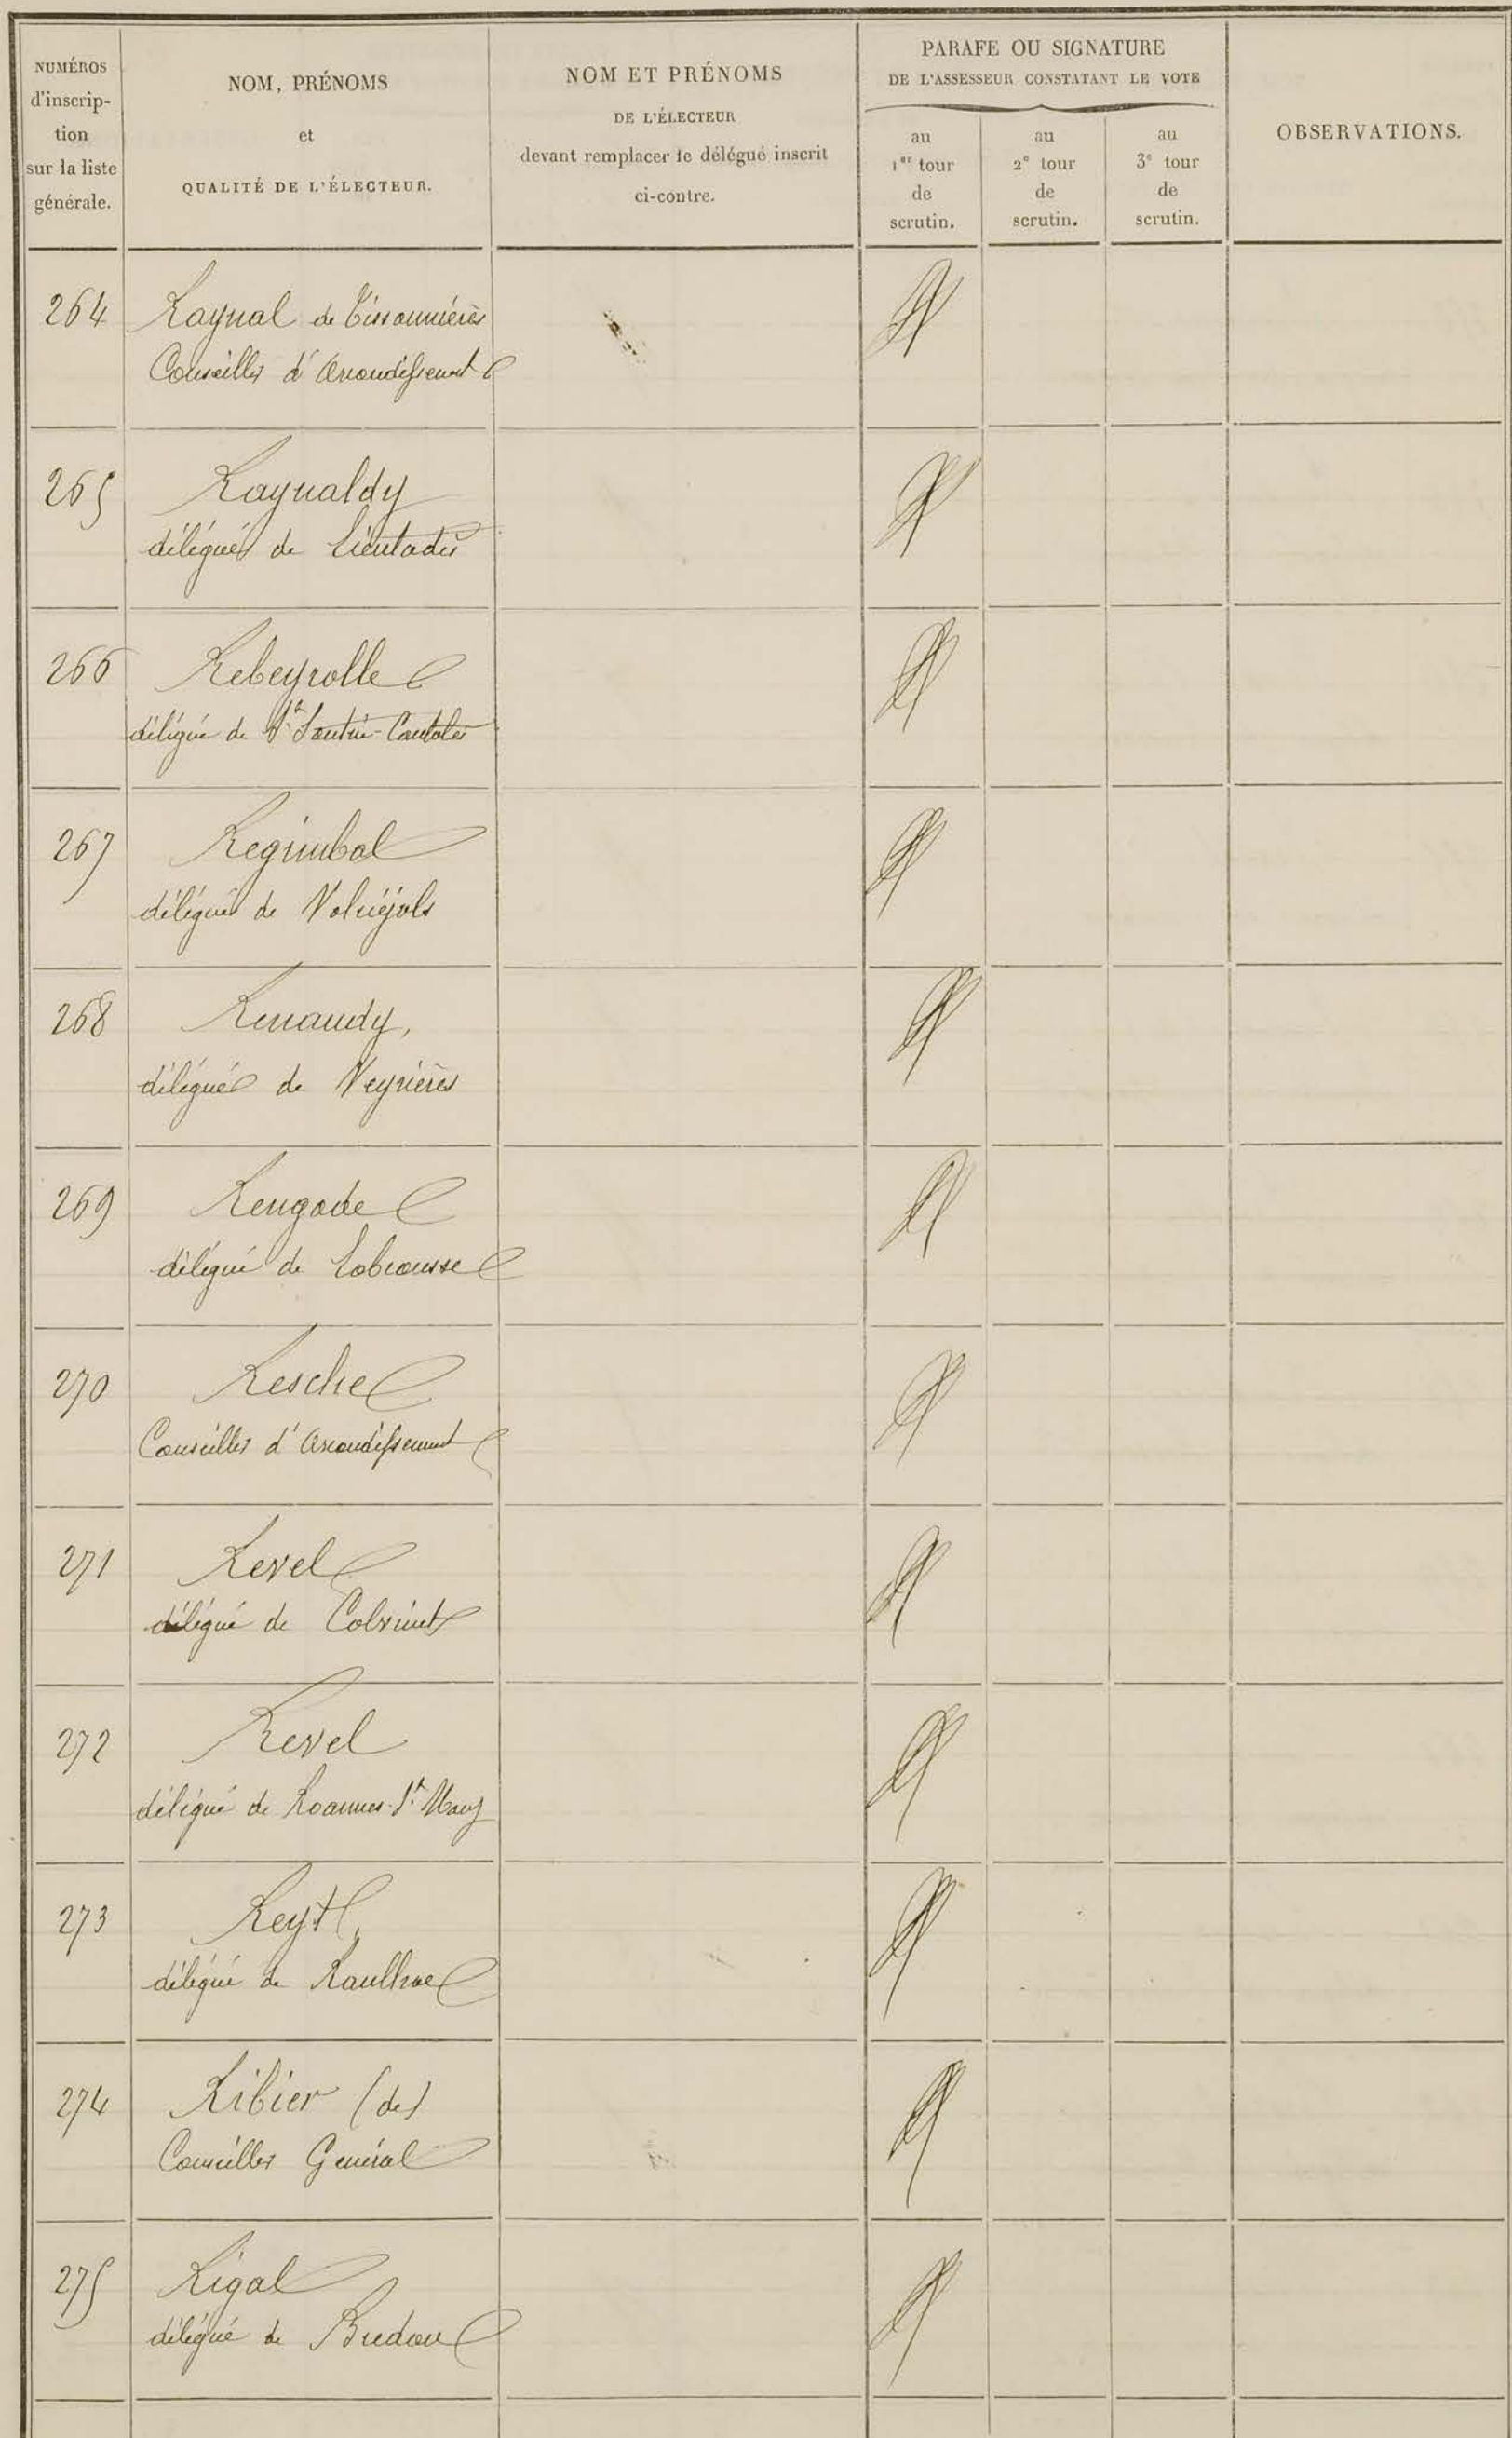 NUMÉROS
d'inscrip-
tion
sur la liste
générale.
NOM, PRÉNOMS
et
QUALITÉ DE L'ÉLECTEUR.
NOM ET PRÉNOMS
DE L'ÉLECTEUR
devant remplacer le délégué inscrit
ci-contre.
PARAFE OU SIGNATURE
DE L'ASSESSEUR CONSTATANT LE VOTE
au
1er tour
de
scrutin.
au
2e tour
de
scrutin.
au
3e tour
de
scrutin.
OBSERVATIONS.
264 Raynal de Tissonnières
Conseiller d'Arrondissement
265 Raynaldy
délégué de Lieutadès
266 Rebeyrolle
délégué de St Santin-Cantalès
267 Regimbal
délégué de Valuéjols
268 Renaudy,
délégué de Veyrières
269 Rengade
délégué de Labrousse
270 Resche
Conseiller d'Arrondissement
271 Revel
délégué de Coltines
272 Revel
délégué de Roannes-St Mary
273 Reyt,
délégué de Raulhac
274 Ribier (de)
Conseiller Général
275 Rigal
délégué de Bredon